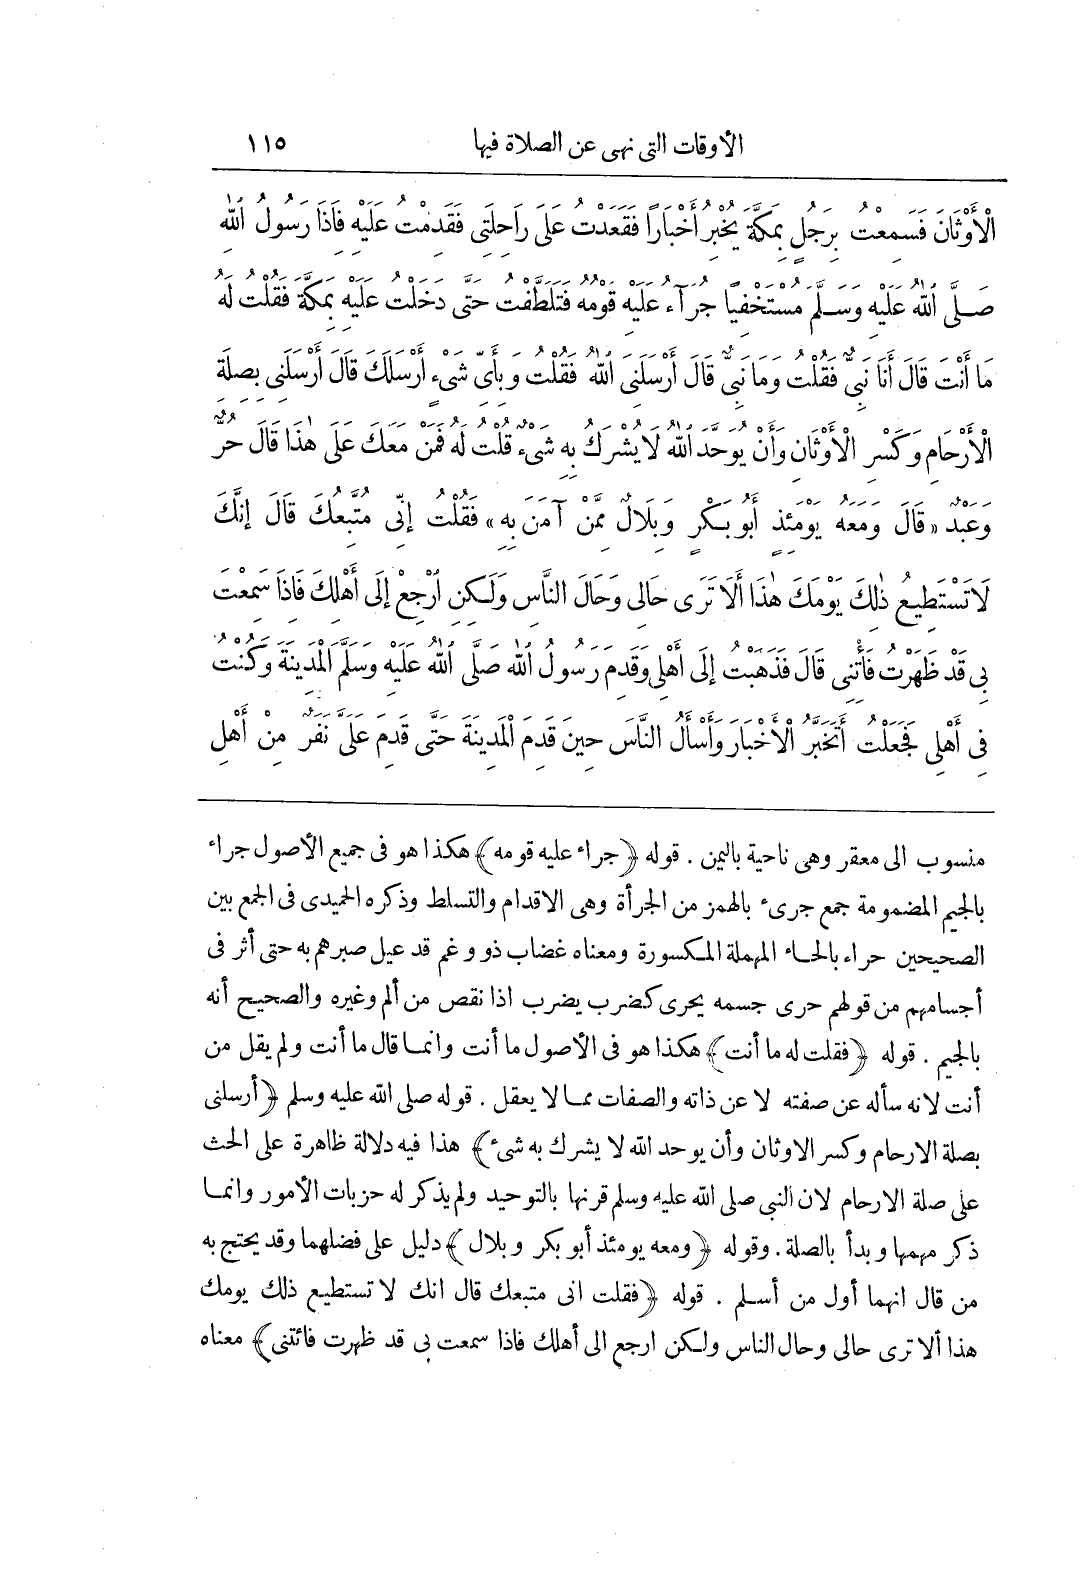 الأوقات التى نهى عن الصلاة فيها ١١٥
الْأَوْثَانَ فَسَمِعْتُ بِرَجُلٍ بِمَكَّةَ يُخْبِرُ أَخْبَارًا فَقَعَدْتُ عَلَى رَاحِلَتِى فَقَدِمْتُ عَلَيْهِ فَاذَا رَسُولُ اللهِ
صَلَّى اللهُ عَلَيْهِ وَسَلَّمَ مُسْتَخْفِيًا جُرَآءُ عَلَيْهِ قَوْمُهُ فَتَلَطَّفْتُ حَتَّى دَخَلْتُ عَلَيْهِ بِمَكَّةَ فَقُلْتُ لَهُ
مَا أَنْتَ قَالَ أَنَا نَبِىٌّ فَقُلْتُ وَمَا نَبِىٌّ قَالَ أَرْسَلَنِى اللهُ فَقُلْتُ وَبِأَىِّ شَىْءٍ أَرْسَلَكَ قَالَ أَرْسَلَنِى بِصِلَةِ
الْأَرْحَامِ وَكَسْرِ الْأَوْثَانِ وَأَنْ يُوَحَّدَ اللهُ لَا يُشْرَكُ بِهِ شَىْءٌ قُلْتُ لَهُ فَمَنْ مَعَكَ عَلَى هٰذَا قَالَ حُرٌّ
وَعَبْدٌ «قَالَ وَمَعَهُ يَوْمَئِذٍ أَبُو بَكْرٍ وَبِلَالٌ مِمَّنْ آمَنَ بِهِ» فَقُلْتُ إِنِّى مُتَّبِعُكَ قَالَ إِنَّكَ
لَا تَسْتَطِيعُ ذٰلِكَ يَوْمَكَ هٰذَا أَلَا تَرَى حَالِى وَحَالَ النَّاسِ وَلَكِنِ ارْجِعْ إِلَى أَهْلِكَ فَاذَا سَمِعْتَ
بِى قَدْ ظَهَرْتُ فَأْتِنِى قَالَ فَذَهَبْتُ إِلَى أَهْلِى وَقَدِمَ رَسُولُ اللهِ صَلَّى اللهُ عَلَيْهِ وَسَلَّمَ الْمَدِينَةَ وَكُنْتُ
فِى أَهْلِى فَجَعَلْتُ أَتَخَبَّرُ الْأَخْبَارَ وَأَسْأَلُ النَّاسَ حِينَ قَدِمَ الْمَدِينَةَ حَتَّى قَدِمَ عَلَىَّ نَفَرٌ مِنْ أَهْلِ
منسوب الى معقر وهى ناحية باليمن . قوله ﴿جراء عليه قومه﴾ هكذا هو فى جميع الأصول جراء
بالجيم المضمومة جمع جرىء بالهمز من الجرأة وهى الاقدام والتسلط وذكره الحميدى فى الجمع بين
الصحيحين حراء بالحاء المهملة المكسورة ومعناه غضاب ذوو غم قد عيل صبرهم به حتى أثر فى
أجسامهم من قولهم حرى جسمه يحرى كضرب يضرب اذا نقص من ألم وغيره والصحيح أنه
بالجيم . قوله ﴿فقلت له ما أنت﴾ هكذا هو فى الأصول ما أنت وانما قال ما أنت ولم يقل من
أنت لانه سأله عن صفته لا عن ذاته والصفات مما لا يعقل . قوله صلى الله عليه وسلم ﴿أرسلنى
بصلة الارحام وكسر الاوثان وأن يوحد الله لا يشرك به شىء﴾ هذا فيه دلالة ظاهرة على الحث
على صلة الارحام لان النبى صلى الله عليه وسلم قرنها بالتوحيد ولم يذكر له حزبات الأمور وانما
ذكر مهمها وبدأ بالصلة . وقوله ﴿ومعه يومئذ أبو بكر وبلال﴾ دليل على فضلهما وقد يحتج به
من قال انهما أول من أسلم . قوله ﴿فقلت انى متبعك قال انك لا تستطيع ذلك يومك
هذا ألا ترى حالى وحال الناس ولكن ارجع الى أهلك فاذا سمعت بى قد ظهرت فائتنى﴾ معناه